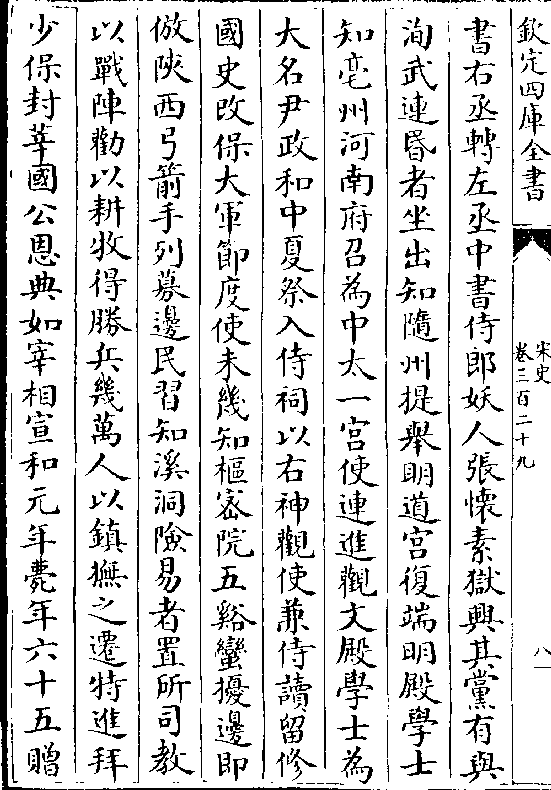 欽定四庫全書
宋史
卷三百二十九
八
書右丞轉左丞中書侍郎妖人張懷素獄興其黨有與
洵武連昏者坐出知隨州提舉明道宮復端明殿學士
知亳州河南府召為中太一宮使連進觀文殿學士為
大名尹政和中夏祭入侍祠以右神觀使兼侍讀留修
國史改保大軍節度使未幾知樞密院五谿蠻擾邊即
倣陜西弓箭手列募邊民習知溪洞險易者置所司教
以戰陣勸以耕牧得勝兵幾萬人以鎮撫之遷特進拜
少保封莘國公恩典如宰相宣和元年薨年六十五贈